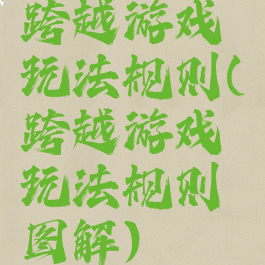 跨越游戏
玩法规则(
跨越游戏
玩法规则
图解)